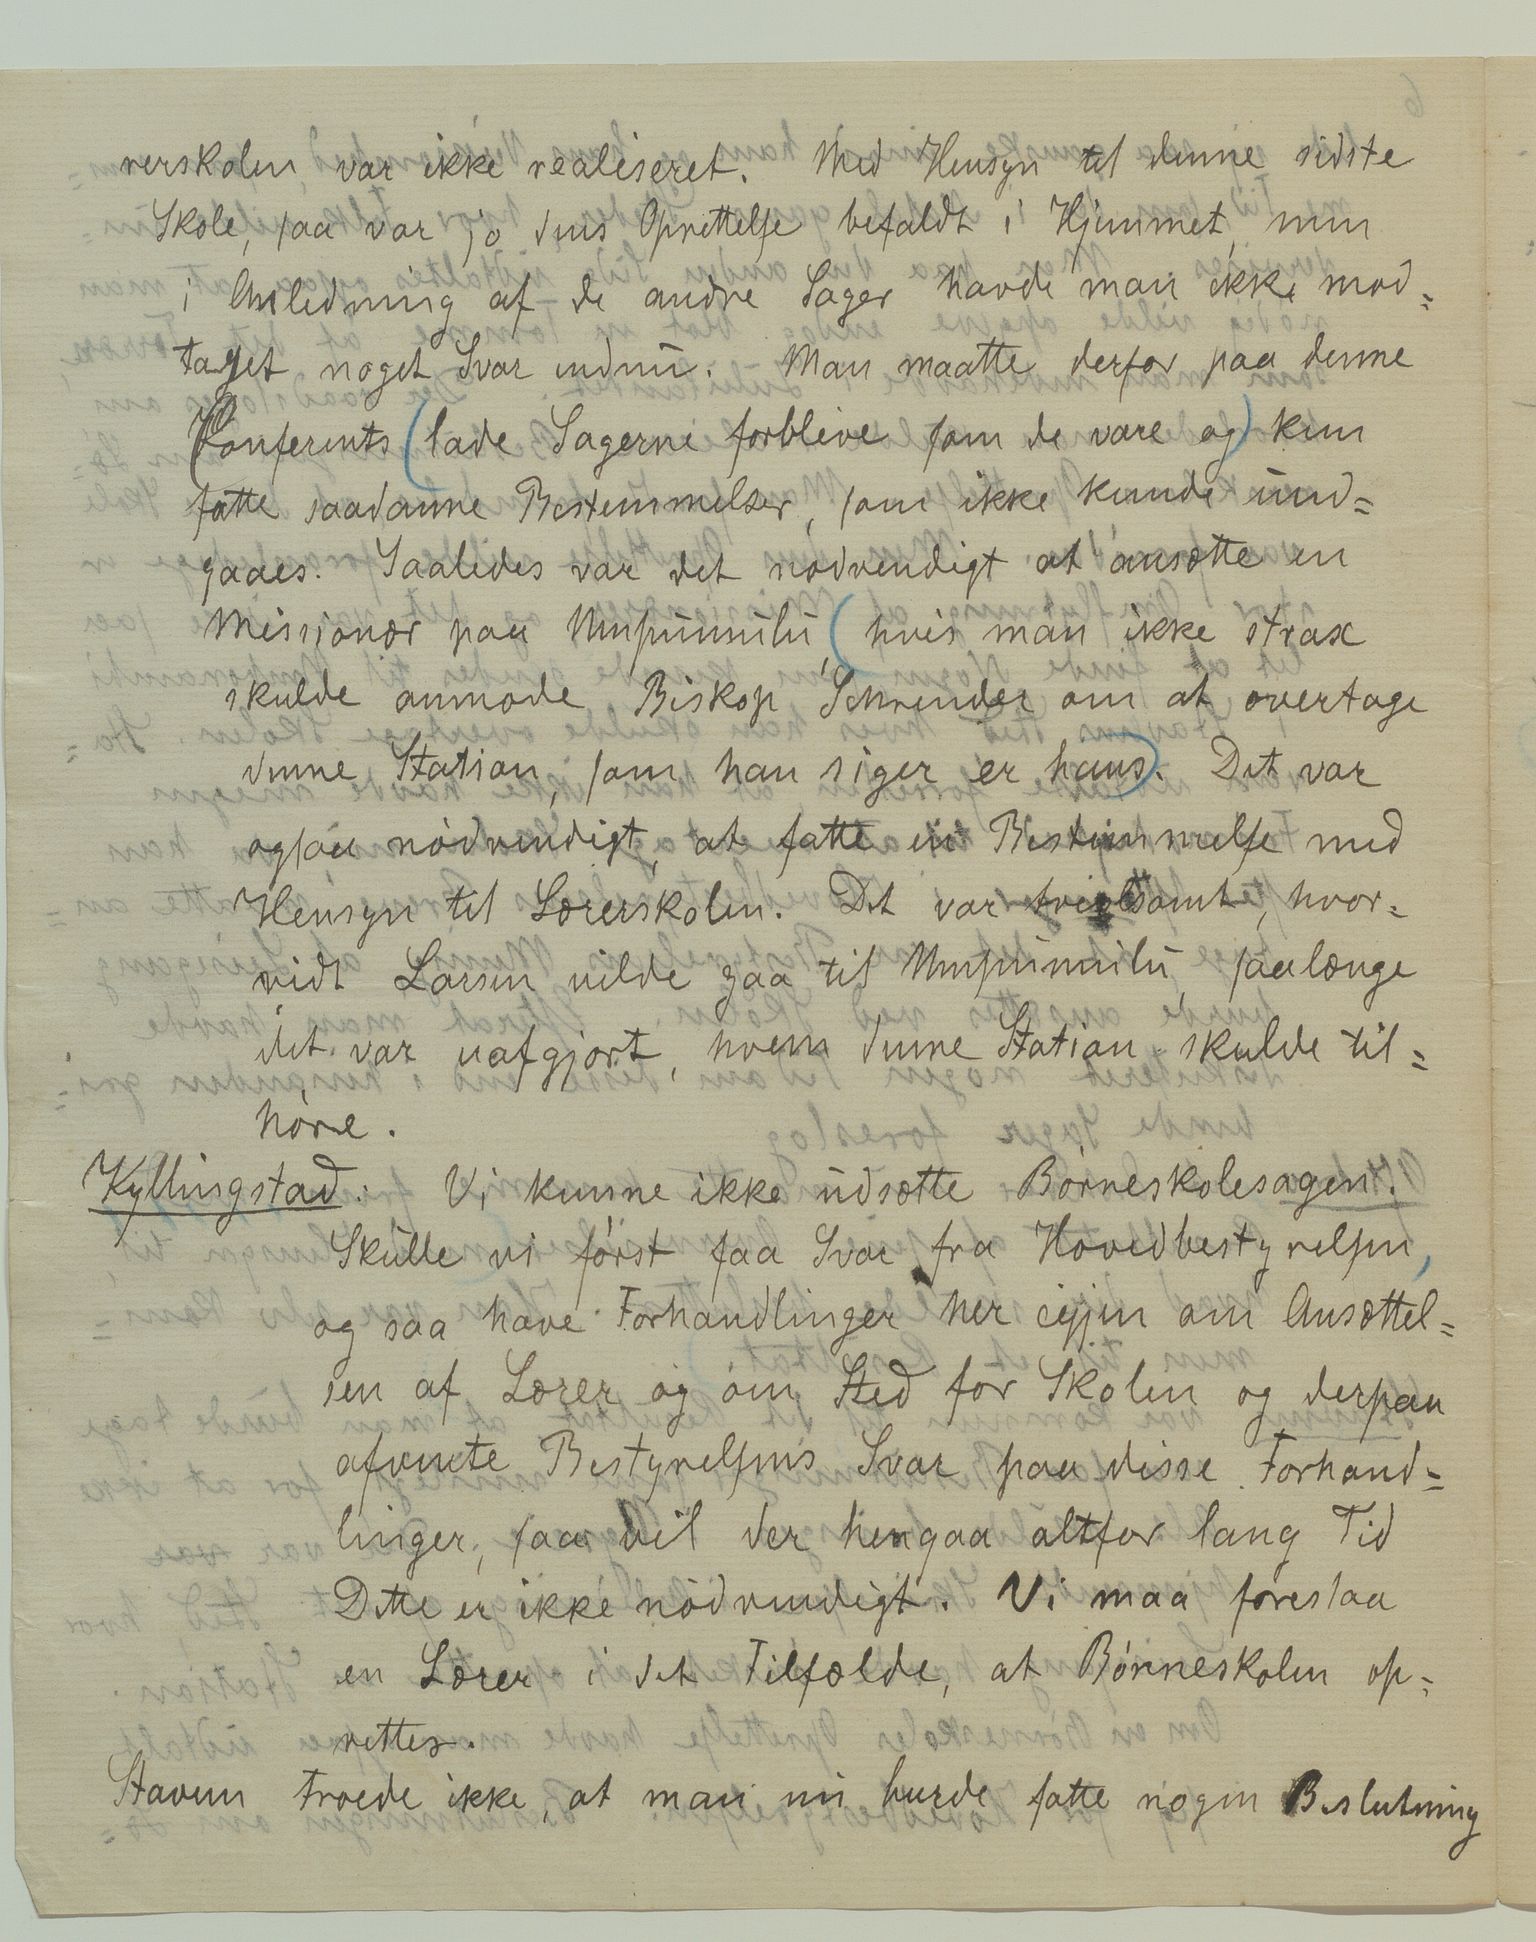 rerskolen, var ikke realiseret. Med Hensyn til denne sidste
Skole, saa var jo dens Oprettelse befaldt i Hjemmet, men
i Anledning af de andre Sager havde man ikke mod=
taget noget Svar endnu. Man maatte derfor paa denne
Konferents (lade Sagerne forblive som de vare og) kun
fatte saadanne Bestemmelser, som ikke kunde und=
gaaes. Saaledes var det nødvendigt at ansætte en
Missionær paa Umpumulu, (hvis man ikke strax
skulde anmode Biskop Schreuder om at overtage
denne Station, som han siger er hans). Det var
ogsaa nødvendigt, at fatte en Bestemmelse med
Hensyn til Lærerskolen. Det var tvivlsomt, hvor=
vidt Larsen vilde gaa til Umpumulu, saalænge
det var uafgjort, hvem denne Station skulde til=
høre.
Kyllingstad: Vi kunne ikke udsætte Børneskolesagen.
Skulle vi først faa Svar fra Hovedbestyrelsen,
og saa have Forhandlinger her igjen om Ansættel=
sen af Lærer og om Sted for Skolen og derpaa
afvente Bestyrelsens Svar paa disse Forhand=
linger, saa vil der hengaa altfor lang Tid
Dette er ikke nødvendigt. Vi maa foreslaa
en Lærer i det Tilfælde, at Børneskolen op=
rettes.
Stavem troede ikke, at man nu burde fatte nogen Beslutning